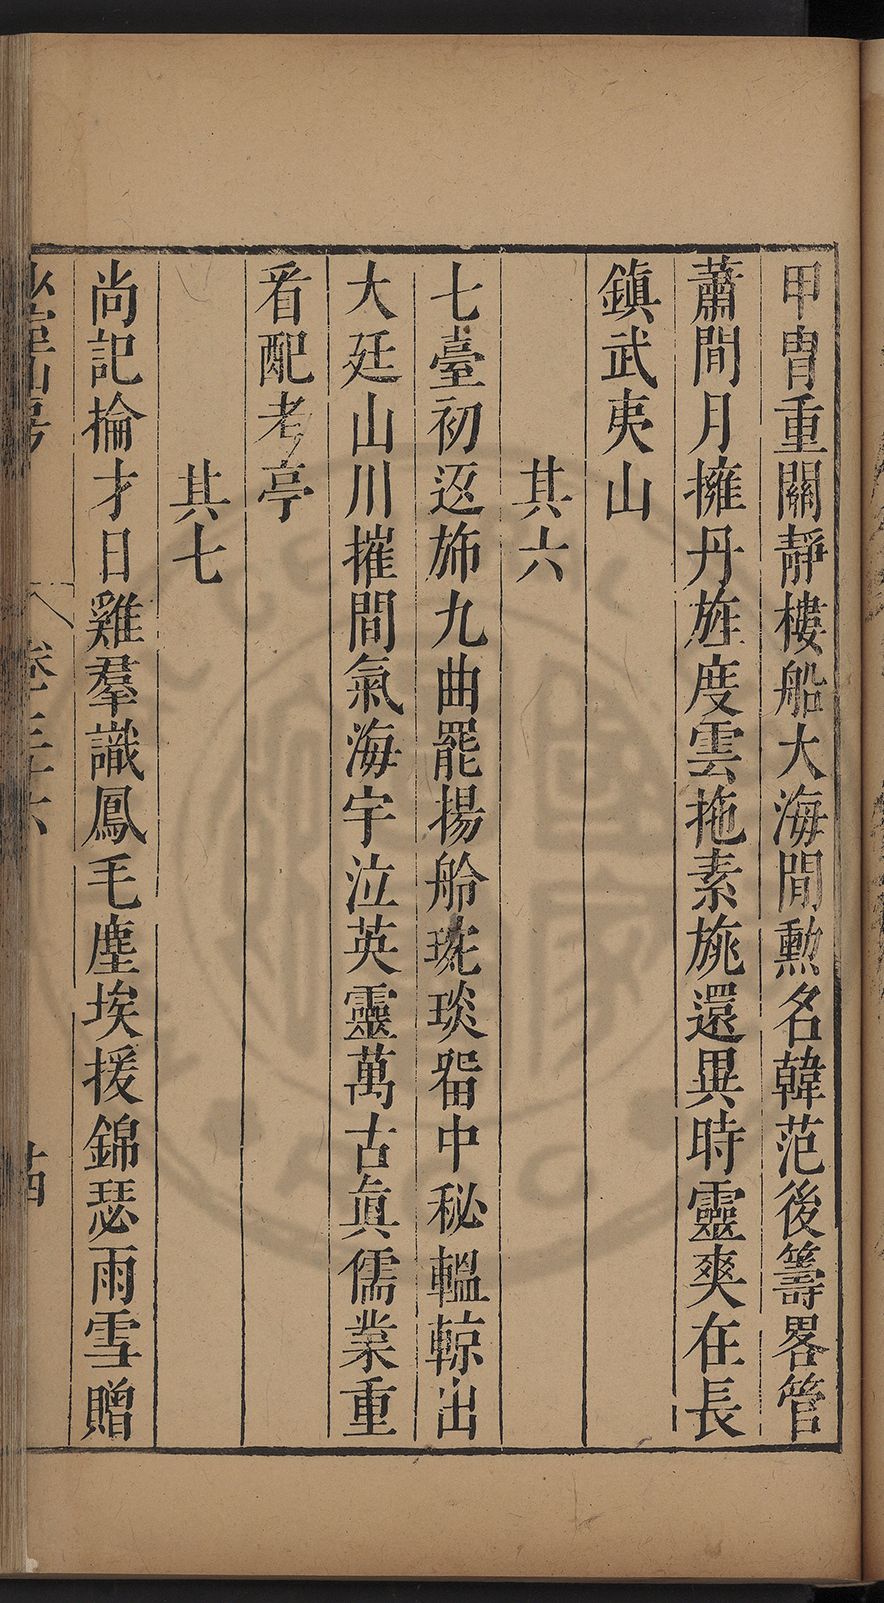 甲胄重關靜樓船大海間勲名韓范後籌畧管
蕭間月擁丹旌度雲拖素旐還異時靈爽在長
鎮武夷山
其六
七臺初返斾九曲罷揚舲琬琰畱中秘轀輬出
大廷山川摧間氣海宇泣英靈萬古真儒業重
看配考亭
其七
尚記掄才日雞羣識鳳毛塵埃援錦瑟雨雪贈
少室山房
卷三十六